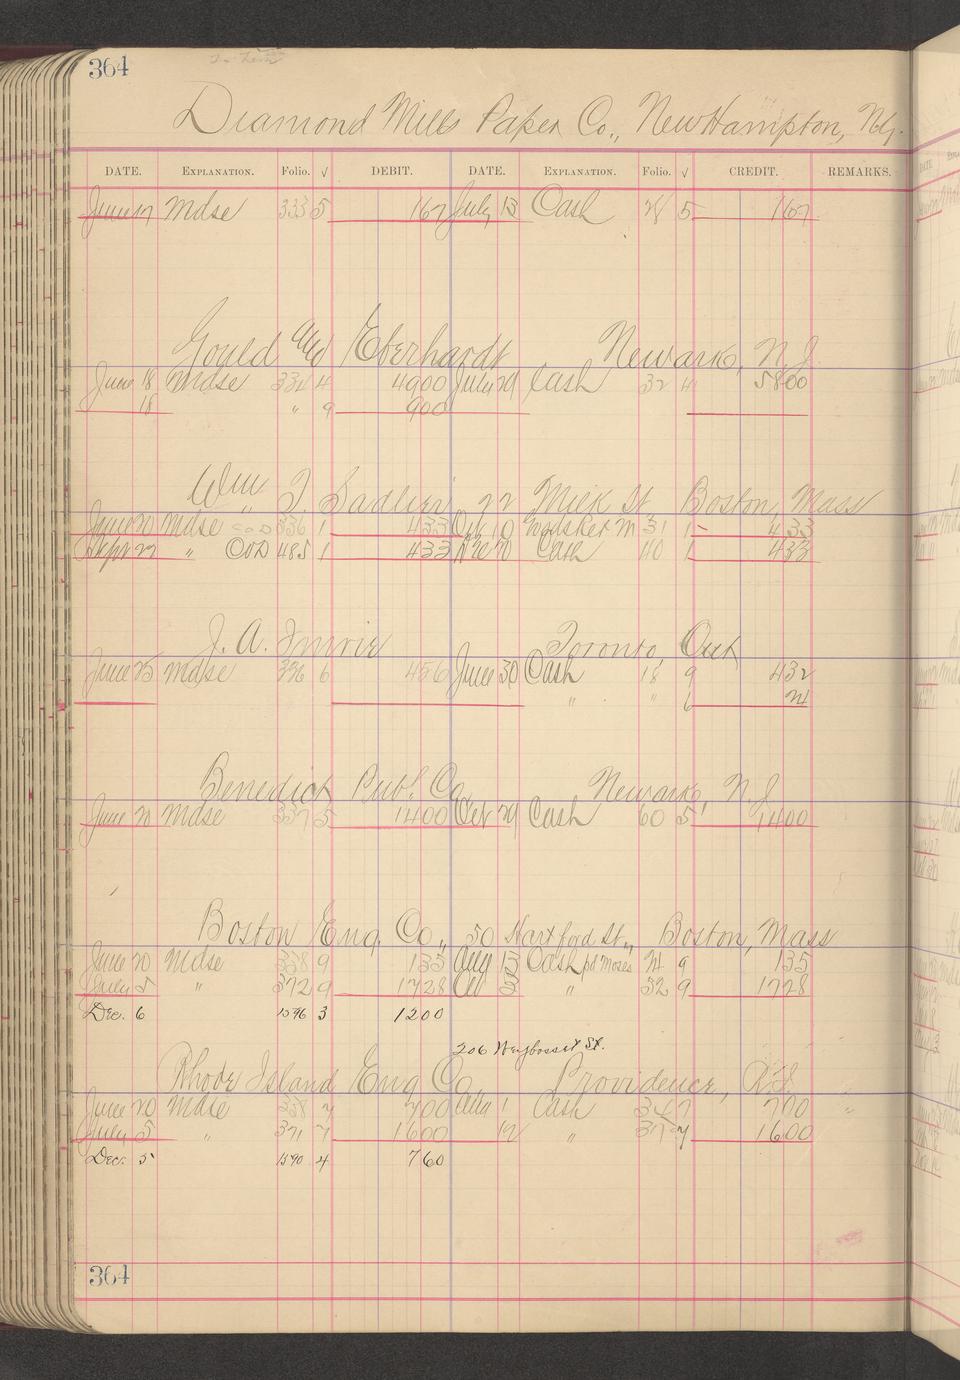 364
Diamond Mills Paper Co., New Hampton, N.J.
DATE. EXPLANATION. Folio. √ DEBIT. DATE. EXPLANATION. Folio. √ CREDIT. REMARKS.
June 17 Mdse 333 5 167 July 13 Cash 28 5 167
Gould and Eberhardt Newark, N.J.
June 18 Mdse 334 4 4900 July 29 Cash 32 4 5800
18 " 9 900
Wm J. Sadlier, 22 St., Boston, Mass
June 20 Mdse COD 336 1 433 Oct 10 Mdse 31 1 433
Sept 27 " COD 485 1 433 Dec 20 Cash 110 1 433
J. A. Imrie Toronto, Ont
June 25 Mdse 336 6 456 June 30 Cash 18 9 432
" " 6 24
Benedict Publ. Co. Newark, N.J.
June 20 Mdse 337 5 1400 Oct 29 Cash 60 5 1400
Boston Eng. Co., 50 Hartford St., Boston, Mass
June 20 Mdse 338 9 135 Aug 13 Cash pd Moses 34 9 135
July 5 " 372 9 1728 Oct 3 " 52 9 1728
Dec. 6 1596 3 1200
206 Weybosset St.
Rhode Island Eng Co. Providence, R.I.
June 20 Mdse 338 7 700 Aug 1 Cash 34 7 700
July 5 " 371 7 1600 12 " 37 7 1600
Dec. 5 1590 4 760
364